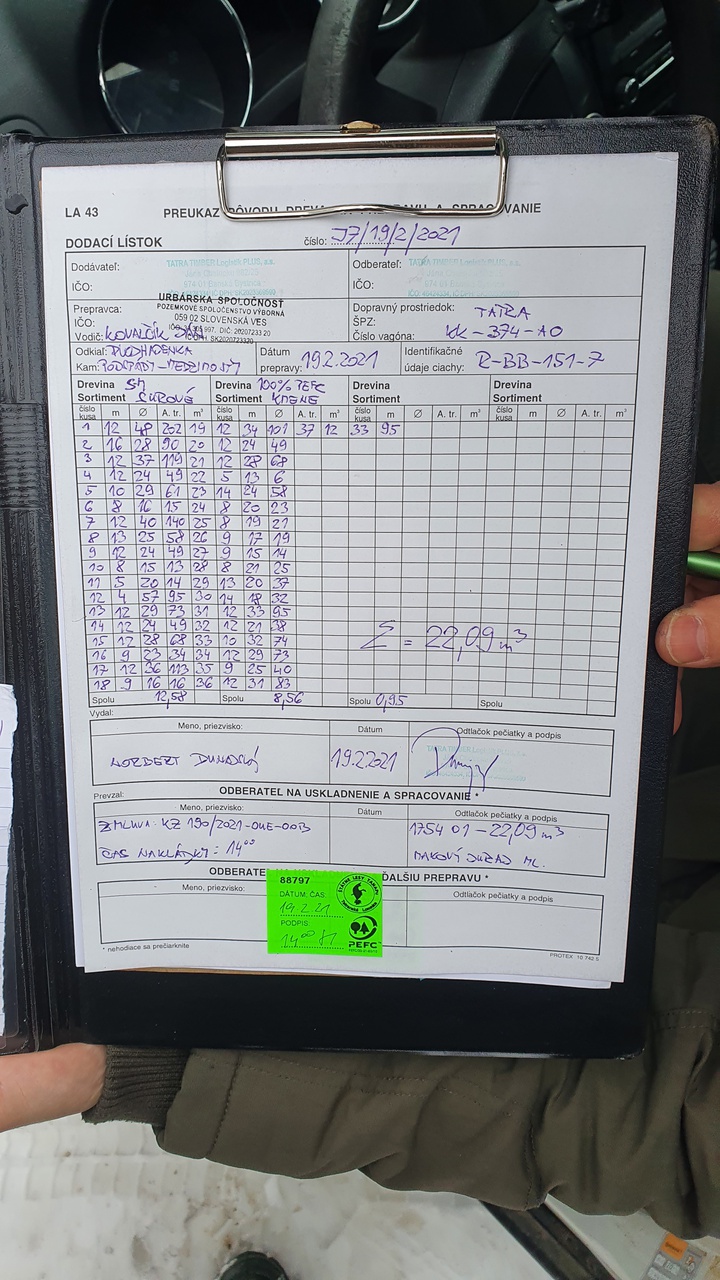 LA 43
PREUKAZ PÔVODU DREVA A SPRACOVANIE
DODACÍ LÍSTOK
číslo: J7/19/2/2021
Dodávateľ: TATRA TIMBER Logistik PLUS, a.s.
IČO:
Odberateľ: TATRA TIMBER Logistik PLUS, a.s.
IČO:
URBÁRSKA SPOLOČNOSŤ
POZEMKOVÉ SPOLOČENSTVO VÝBORNÁ
059 02 SLOVENSKÁ VES
Prepravca:
IČO:
Vodič: KOVALČÍK JÁN
Dopravný prostriedok: TATRA
ŠPZ:
Číslo vagóna: KK-374-AO
Odkiaľ:
Kam:
Dátum prepravy: 19.2.2021
Identifikačné údaje ciachy: R-BB-151-7
Drevina SM 100% PEFC
Sortiment SUROVÉ KMENE
číslo kusa m Ø A. tr. m³ m Ø A. tr. m³
1 12 48 202 19 12 34 101 37 12 33 95
2 16 28 90 20 12 24 49
3 12 37 119 21 12 28 68
4 12 24 49 22 5 13 6
5 10 29 61 23 14 24 58
6 8 16 15 24 8 20 23
7 12 40 140 25 8 19 21
8 13 25 58 26 9 17 19
9 12 24 49 27 9 15 14
10 8 15 13 28 8 21 25
11 5 20 14 29 13 20 37
12 4 57 95 30 14 18 32
13 12 29 73 31 12 33 95
14 12 24 49 32 12 21 38
15 12 28 68 33 10 32 74
16 9 23 34 34 12 29 73
17 12 36 113 35 9 25 40
18 9 16 16 36 12 31 83
Σ = 22,09 m³
Spolu 12,58 Spolu 8,56 Spolu 0,95 Spolu
Vydal:
Meno, priezvisko: Dátum Odtlačok pečiatky a podpis
NORBERT 19.2.2021
ODBERATEĽ NA USKLADNENIE A SPRACOVANIE *
Prevzal:
Meno, priezvisko: Dátum Odtlačok pečiatky a podpis
ZMLUVA: KZ 190/2021-OKE-OOB 1754 01 - 22,09 m³
ČAS NAKLÁDKY: 14⁰⁰
ODBERATEĽ ĎALŠIU PREPRAVU *
Meno, priezvisko: Odtlačok pečiatky a podpis
88797
DÁTUM: ČAS:
19.2.21
PODPIS:
14⁰⁰
PEFC
* nehodiace sa prečiarknite
PROTEX 10 742 5